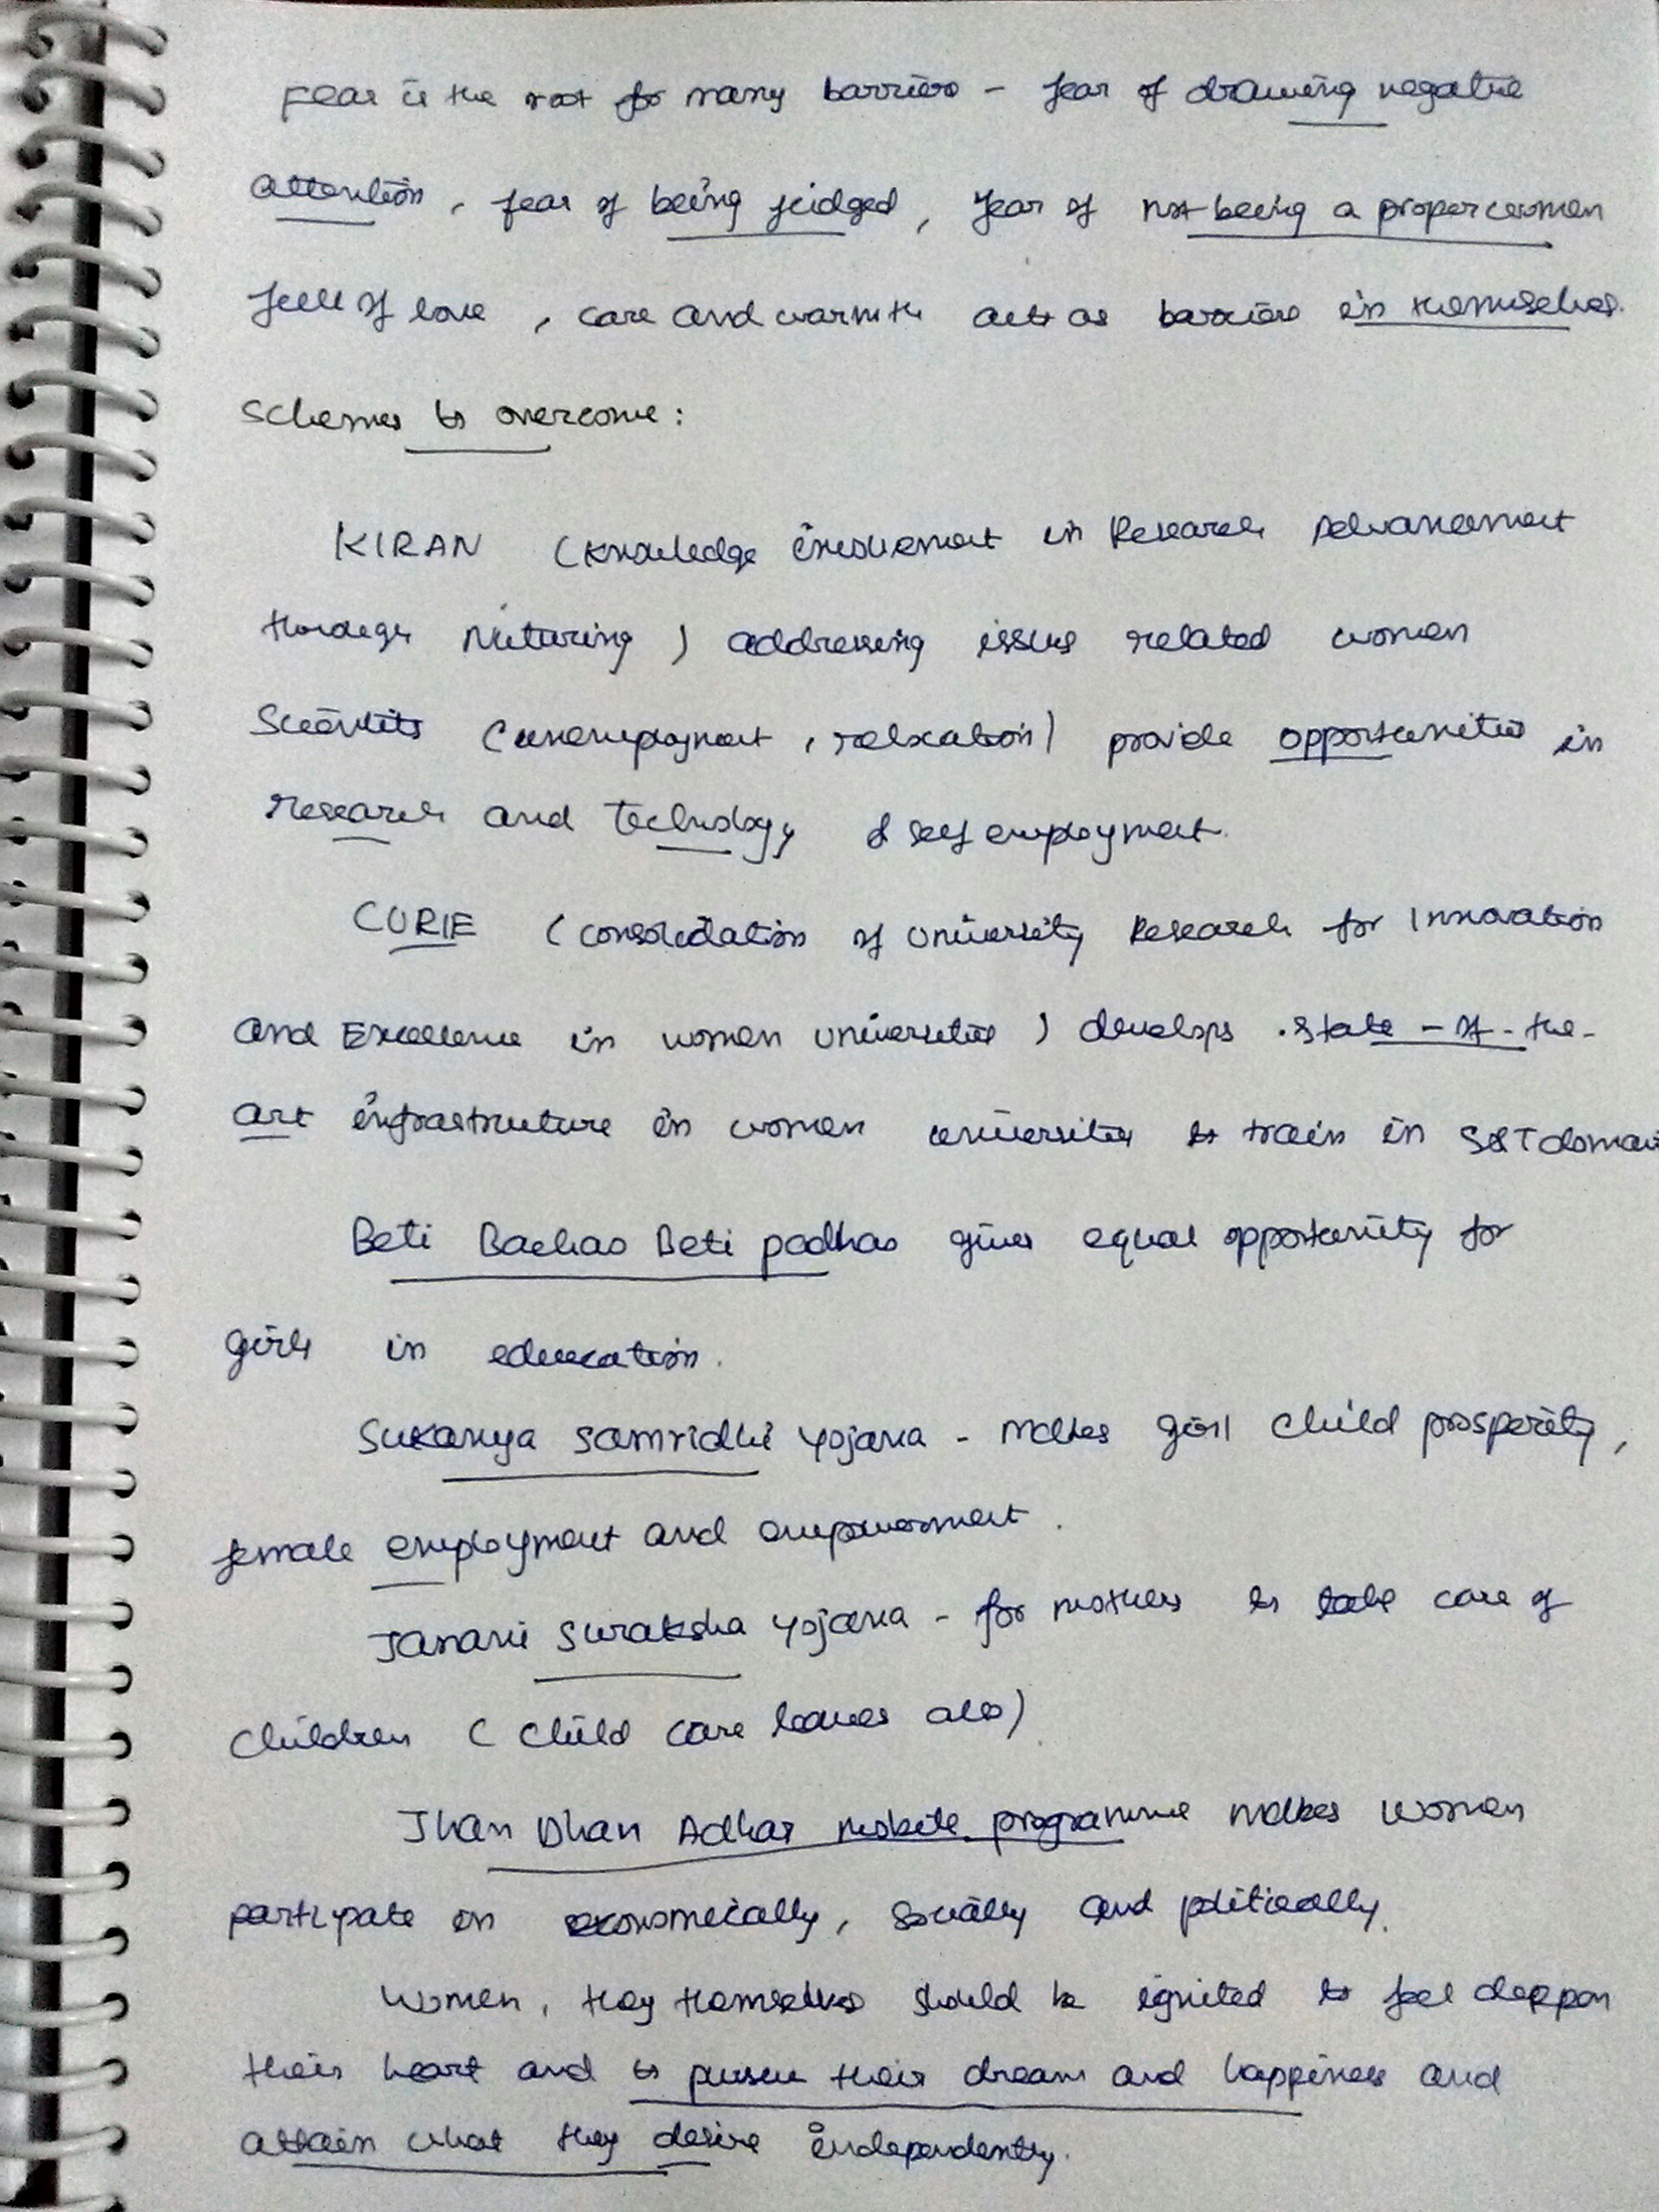 Fear is the root for many barriers - fear of drawing negative
attention, fear of being judged, fear of not being a proper women
full of love, care and warmth acts as barriers in themselves.
Schemes to overcome:
KIRAN (Knowledge involvement in Research Advancement
through Nuturing) addressing issues related women
Scientits (unemployment, relocation) provide opportunities in
research and Technology & self employment.
CURIE (consolidation of University Research for Innovation
and Excellence in women universities) develops state-of-the-
art infrastruture in women universities to train in S&T domain
Beti Bachao Beti padhao gives equal opportunity for
girls in education.
Sukanya Samridhi Yojana - makes girl child prosperity,
female employment and empowerment.
Janani Suraksha Yojana - for mothers to take care of
children (child care leaves also)
Jhan Dhan Adhar mobile programme makes women
participate in economically, socially and politically.
Women, they themselves should be ignited to feel deep on
their heart and to pursue their dream and happiness and
attain what they desire independently.